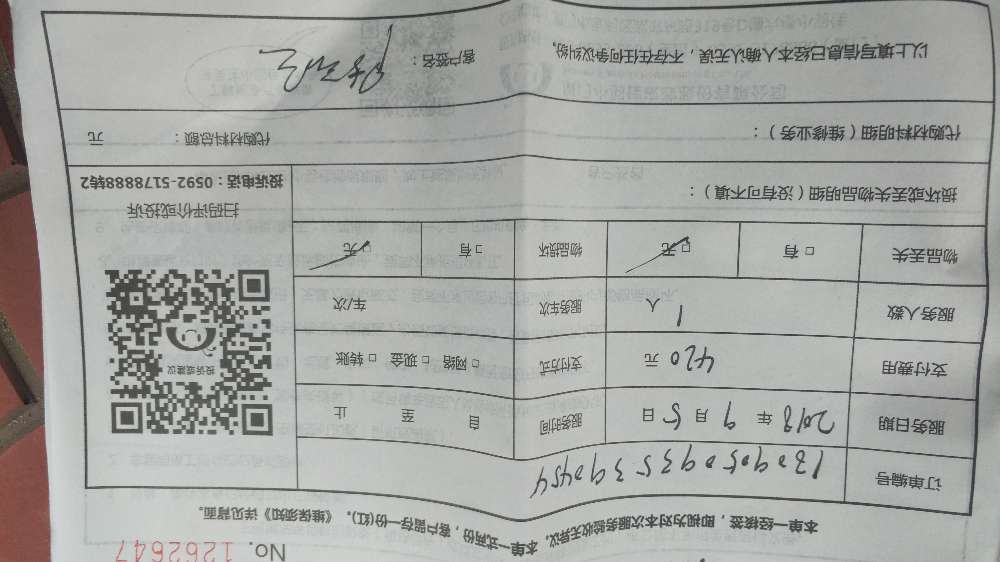 No. 1262647
本单一经核签，即视为对本次服务验收无异议，本单一式两份，客户留存一份(红)，《维保须知》详见背面。
订单编号 1809050935390454
服务日期 2018 年 9 月 5 日 服务时间 自 至 止
支付费用 420 元 支付方式 □ 网络 □ 现金 □ 转账
服务人数 1 人 服务车次 车/次
物品丢失 □ 有 □ 无 物品损坏 □ 有 □ 无
损坏或丢失物品明细（没有可不填）：
投诉或建议
扫码评价或投诉
投诉电话：0592-5178888转2
代购材料明细（维修业务）： 代购材料总额： 元
以上填写信息已经本人确认无误，不存在任何争议纠纷。 客户签名：